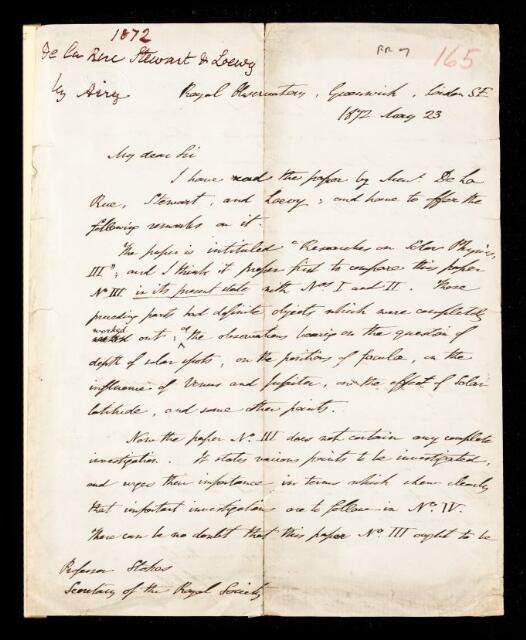 1872
De La Rue Stewart & Loewy
by Airy
RR 7
165
Royal Observatory, Greenwich, London SE
1872 May 23
My dear Sir
I have read the paper by Messrs De La
Rue, Stewart, and Loewy; and have to offer the
following remarks on it.
The paper is intituled "Researches on Solar Physics,
III"; and I think it proper first to compare this paper
No III in its present state with Nos I and II. Those
preceding parts had definite objects which were completely
worked out; the observations bearing on the question of
depth of solar spots, on the positions of faculæ, on the
influence of Venus and Jupiter, on the effect of Solar
latitude, and some other points.
Now the paper No III does not contain any complete
investigation. It states various points to be investigated,
and urges their importance in terms which shew clearly
that important investigations are to follow in No IV.
There can be no doubt that this paper No III ought to be
Professor Stokes
Secretary of the Royal Society